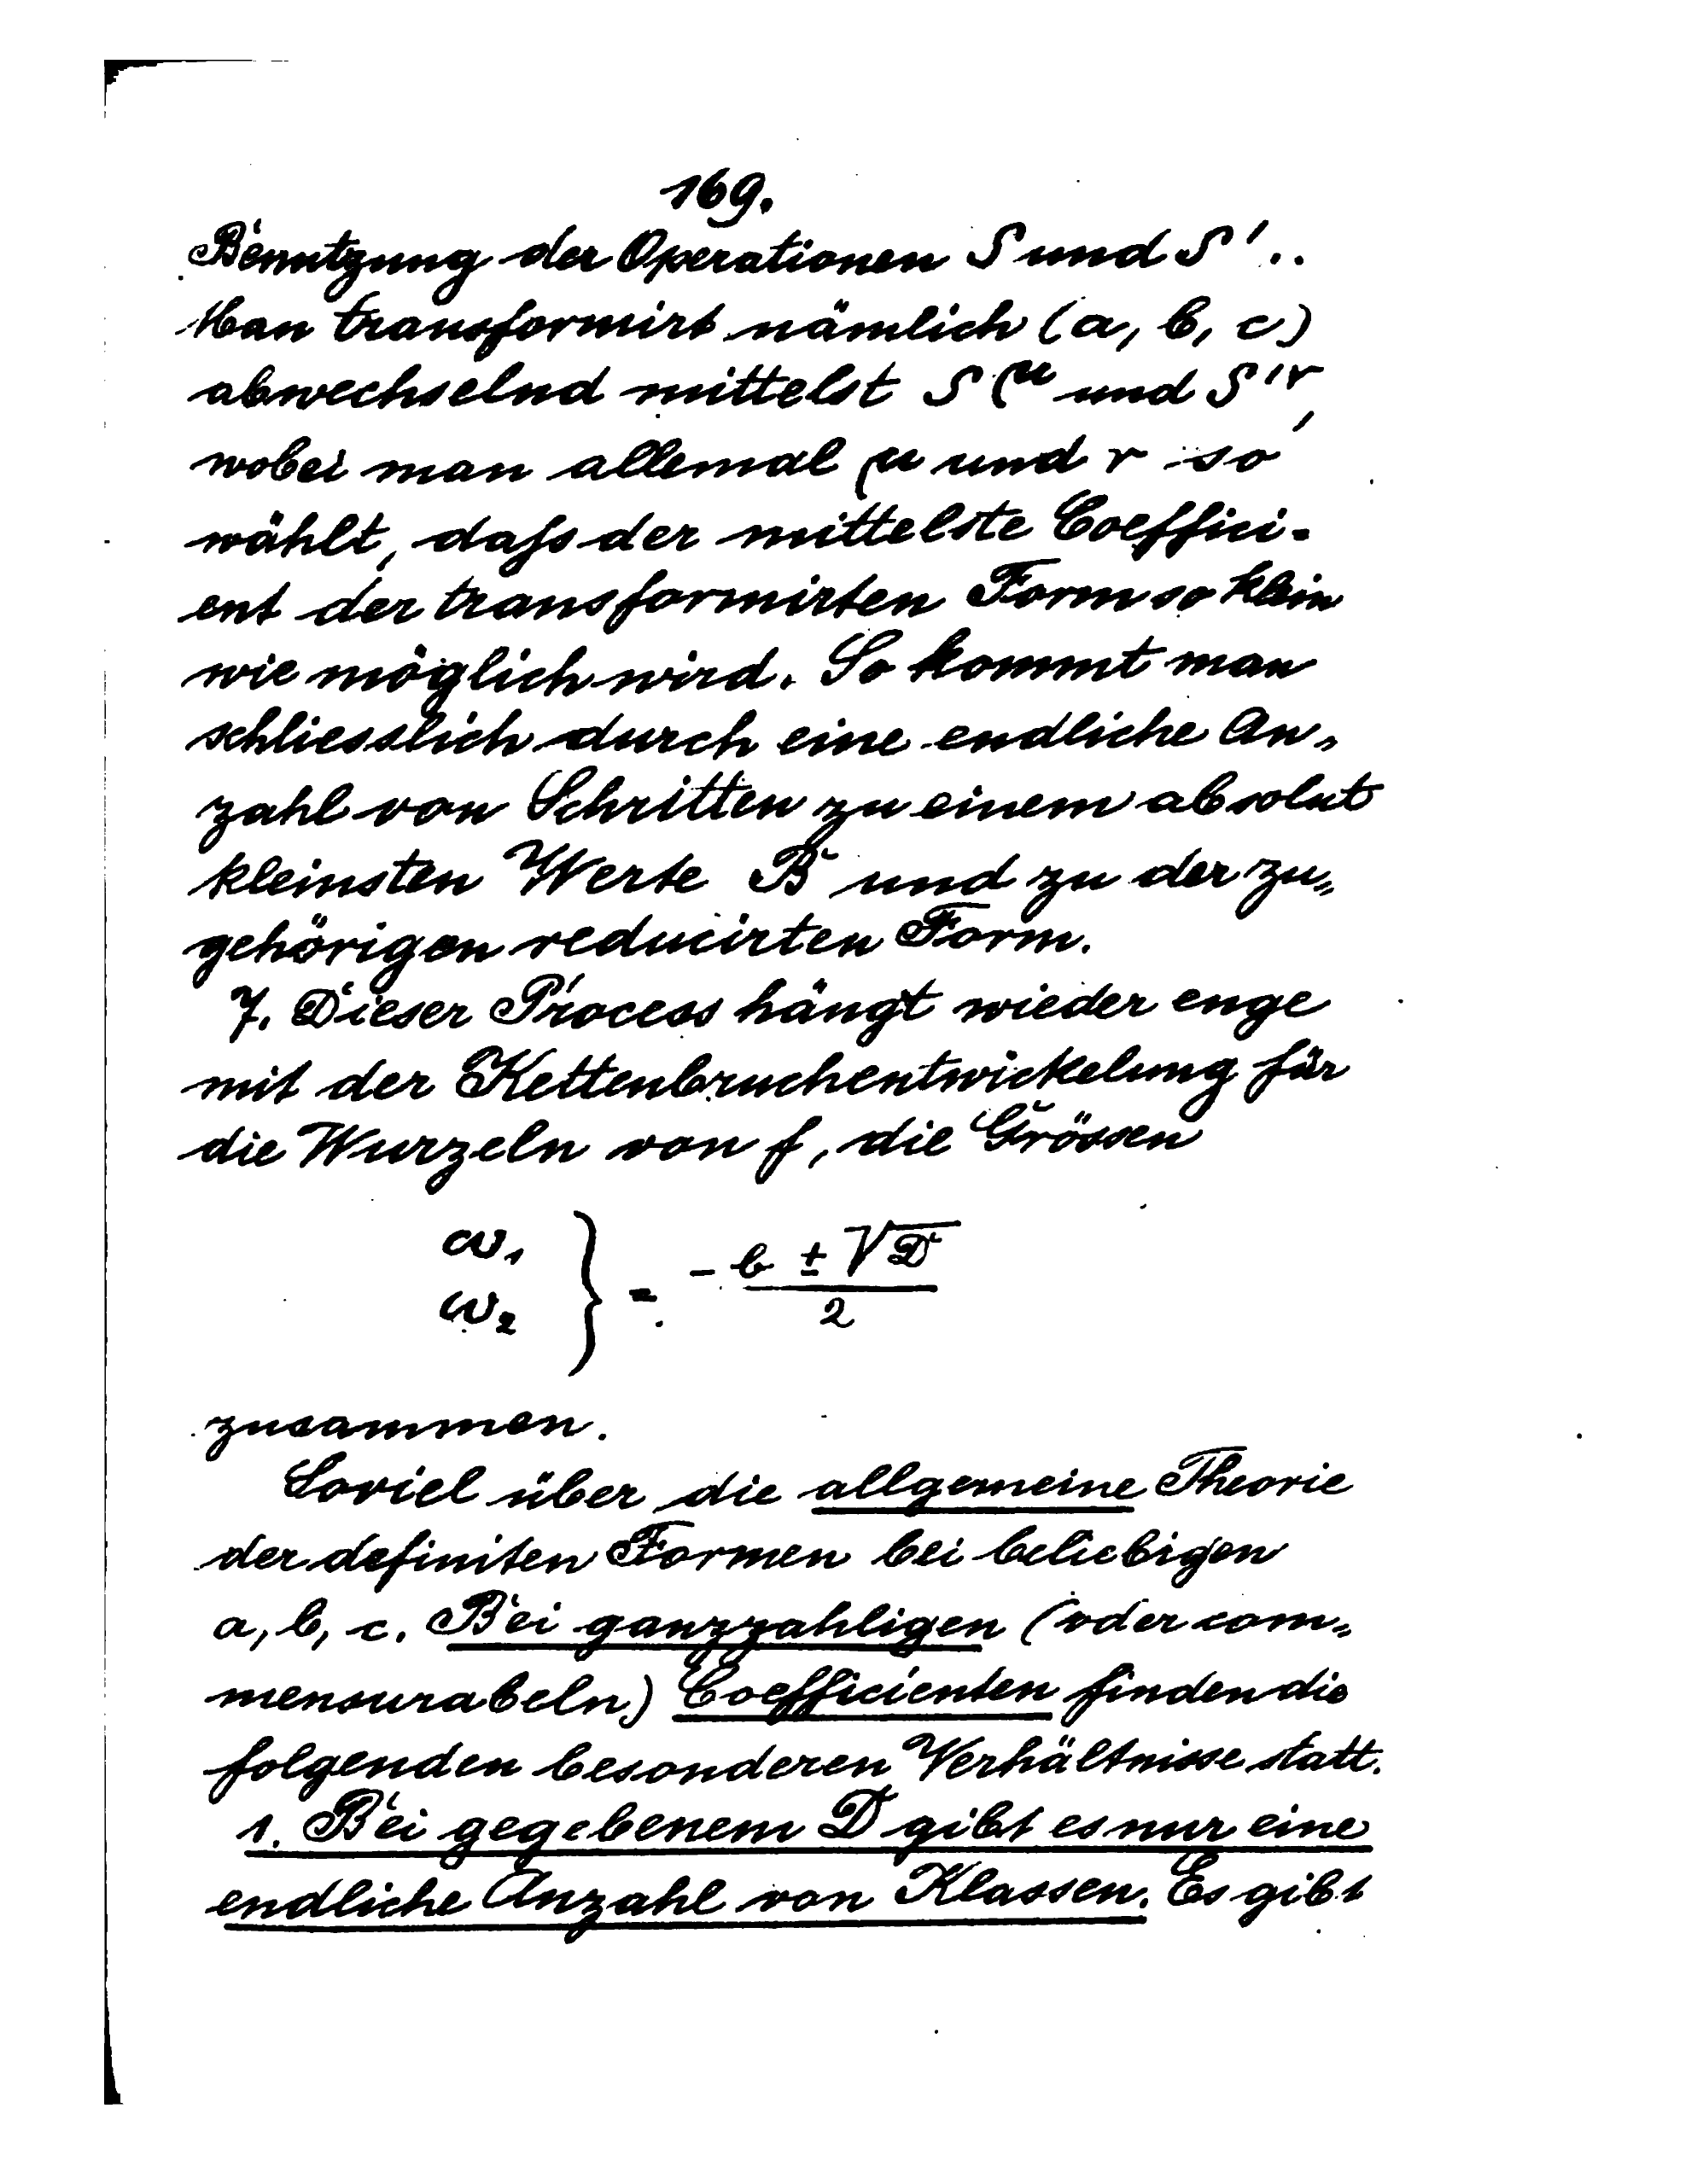 169.
Benutzung der Operationen S und S'..
Man transformirt nämlich (a, b, c)
abwechselnd mittelst S^μ und S'^ν,
wobei man allemal μ und ν so
wählt, dafs der mittelste Coeffici-
ent der transformirten Form so klein
wie möglich wird. So kommt man
schliesslich durch eine endliche An-
zahl von Schritten zu einem absolut
kleinsten Werte B und zu der zu-
gehörigen reducirten Form.
7. Dieser Process hängt wieder enge
mit der Kettenbruchentwickelung für
die Wurzeln von f, die Grössen
ω₁ ω₂ } = (-b ± √D) / 2
zusammen.
Soviel über die allgemeine Theorie
der definiten Formen bei beliebigen
a, b, c. Bei ganzzahligen (oder com-
mensurabeln) Coefficienten finden die
folgenden besonderen Verhältnisse statt.
1. Bei gegebenem D gibt es nur eine
endliche Anzahl von Klassen. Es gibt